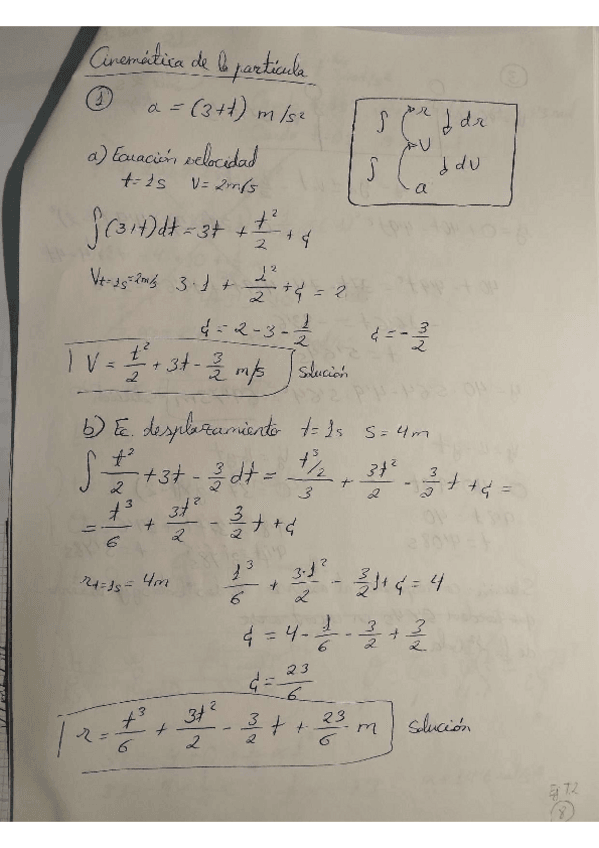 Cinemática de la partícula
① a = (3+t) m/s²
∫ r ↓ dr
v
∫ ↓ dv
a
a) Ecuación velocidad
t = 1s v = 2m/s
∫(3+t)dt = 3t + t²/2 + C
V t=1s = 2m/s 3·1 + 1²/2 + C = 2
C = 2 - 3 - 1/2 C = - 3/2
V = t²/2 + 3t - 3/2 m/s Solución
b) Ec. desplazamiento t = 1s s = 4m
∫ t²/2 + 3t - 3/2 dt = t³/2/3 + 3t²/2 - 3/2 t + C =
= t³/6 + 3t²/2 - 3/2 t + C
r t=1s = 4m 1³/6 + 3·1²/2 - 3/2 1 + C = 4
C = 4 - 1/6 - 3/2 + 3/2
C = 23/6
r = t³/6 + 3t²/2 - 3/2 t + 23/6 · m Solución
Ej T.2
⑧